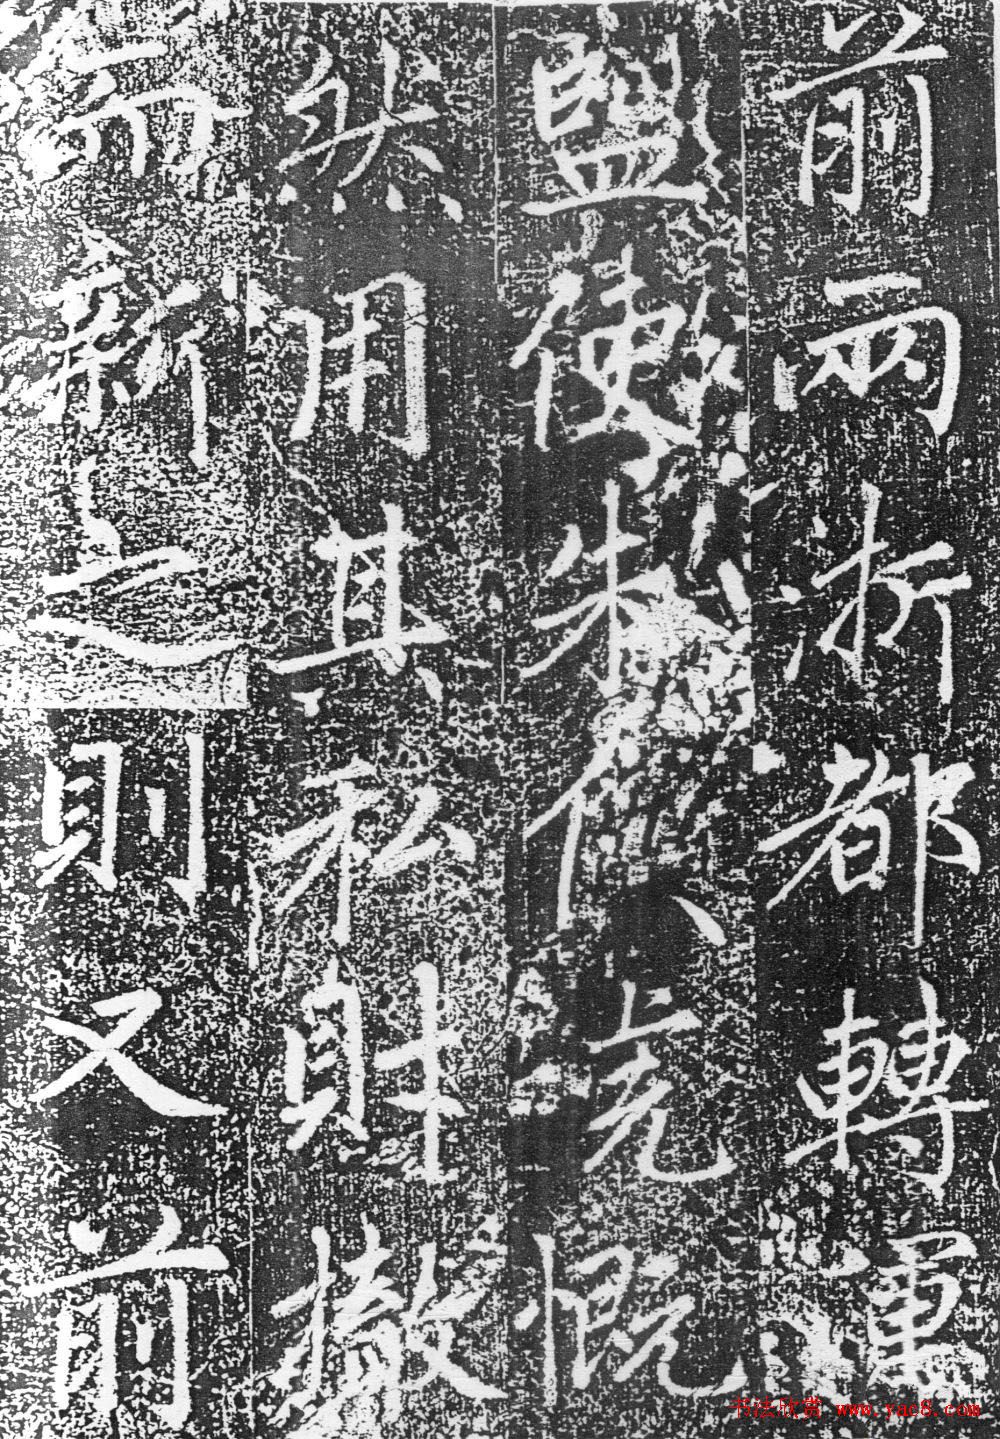 前兩浙都轉運
盬使朱慨
然用其私財撤
而新之則又前
书法欣赏 www.yac8.com